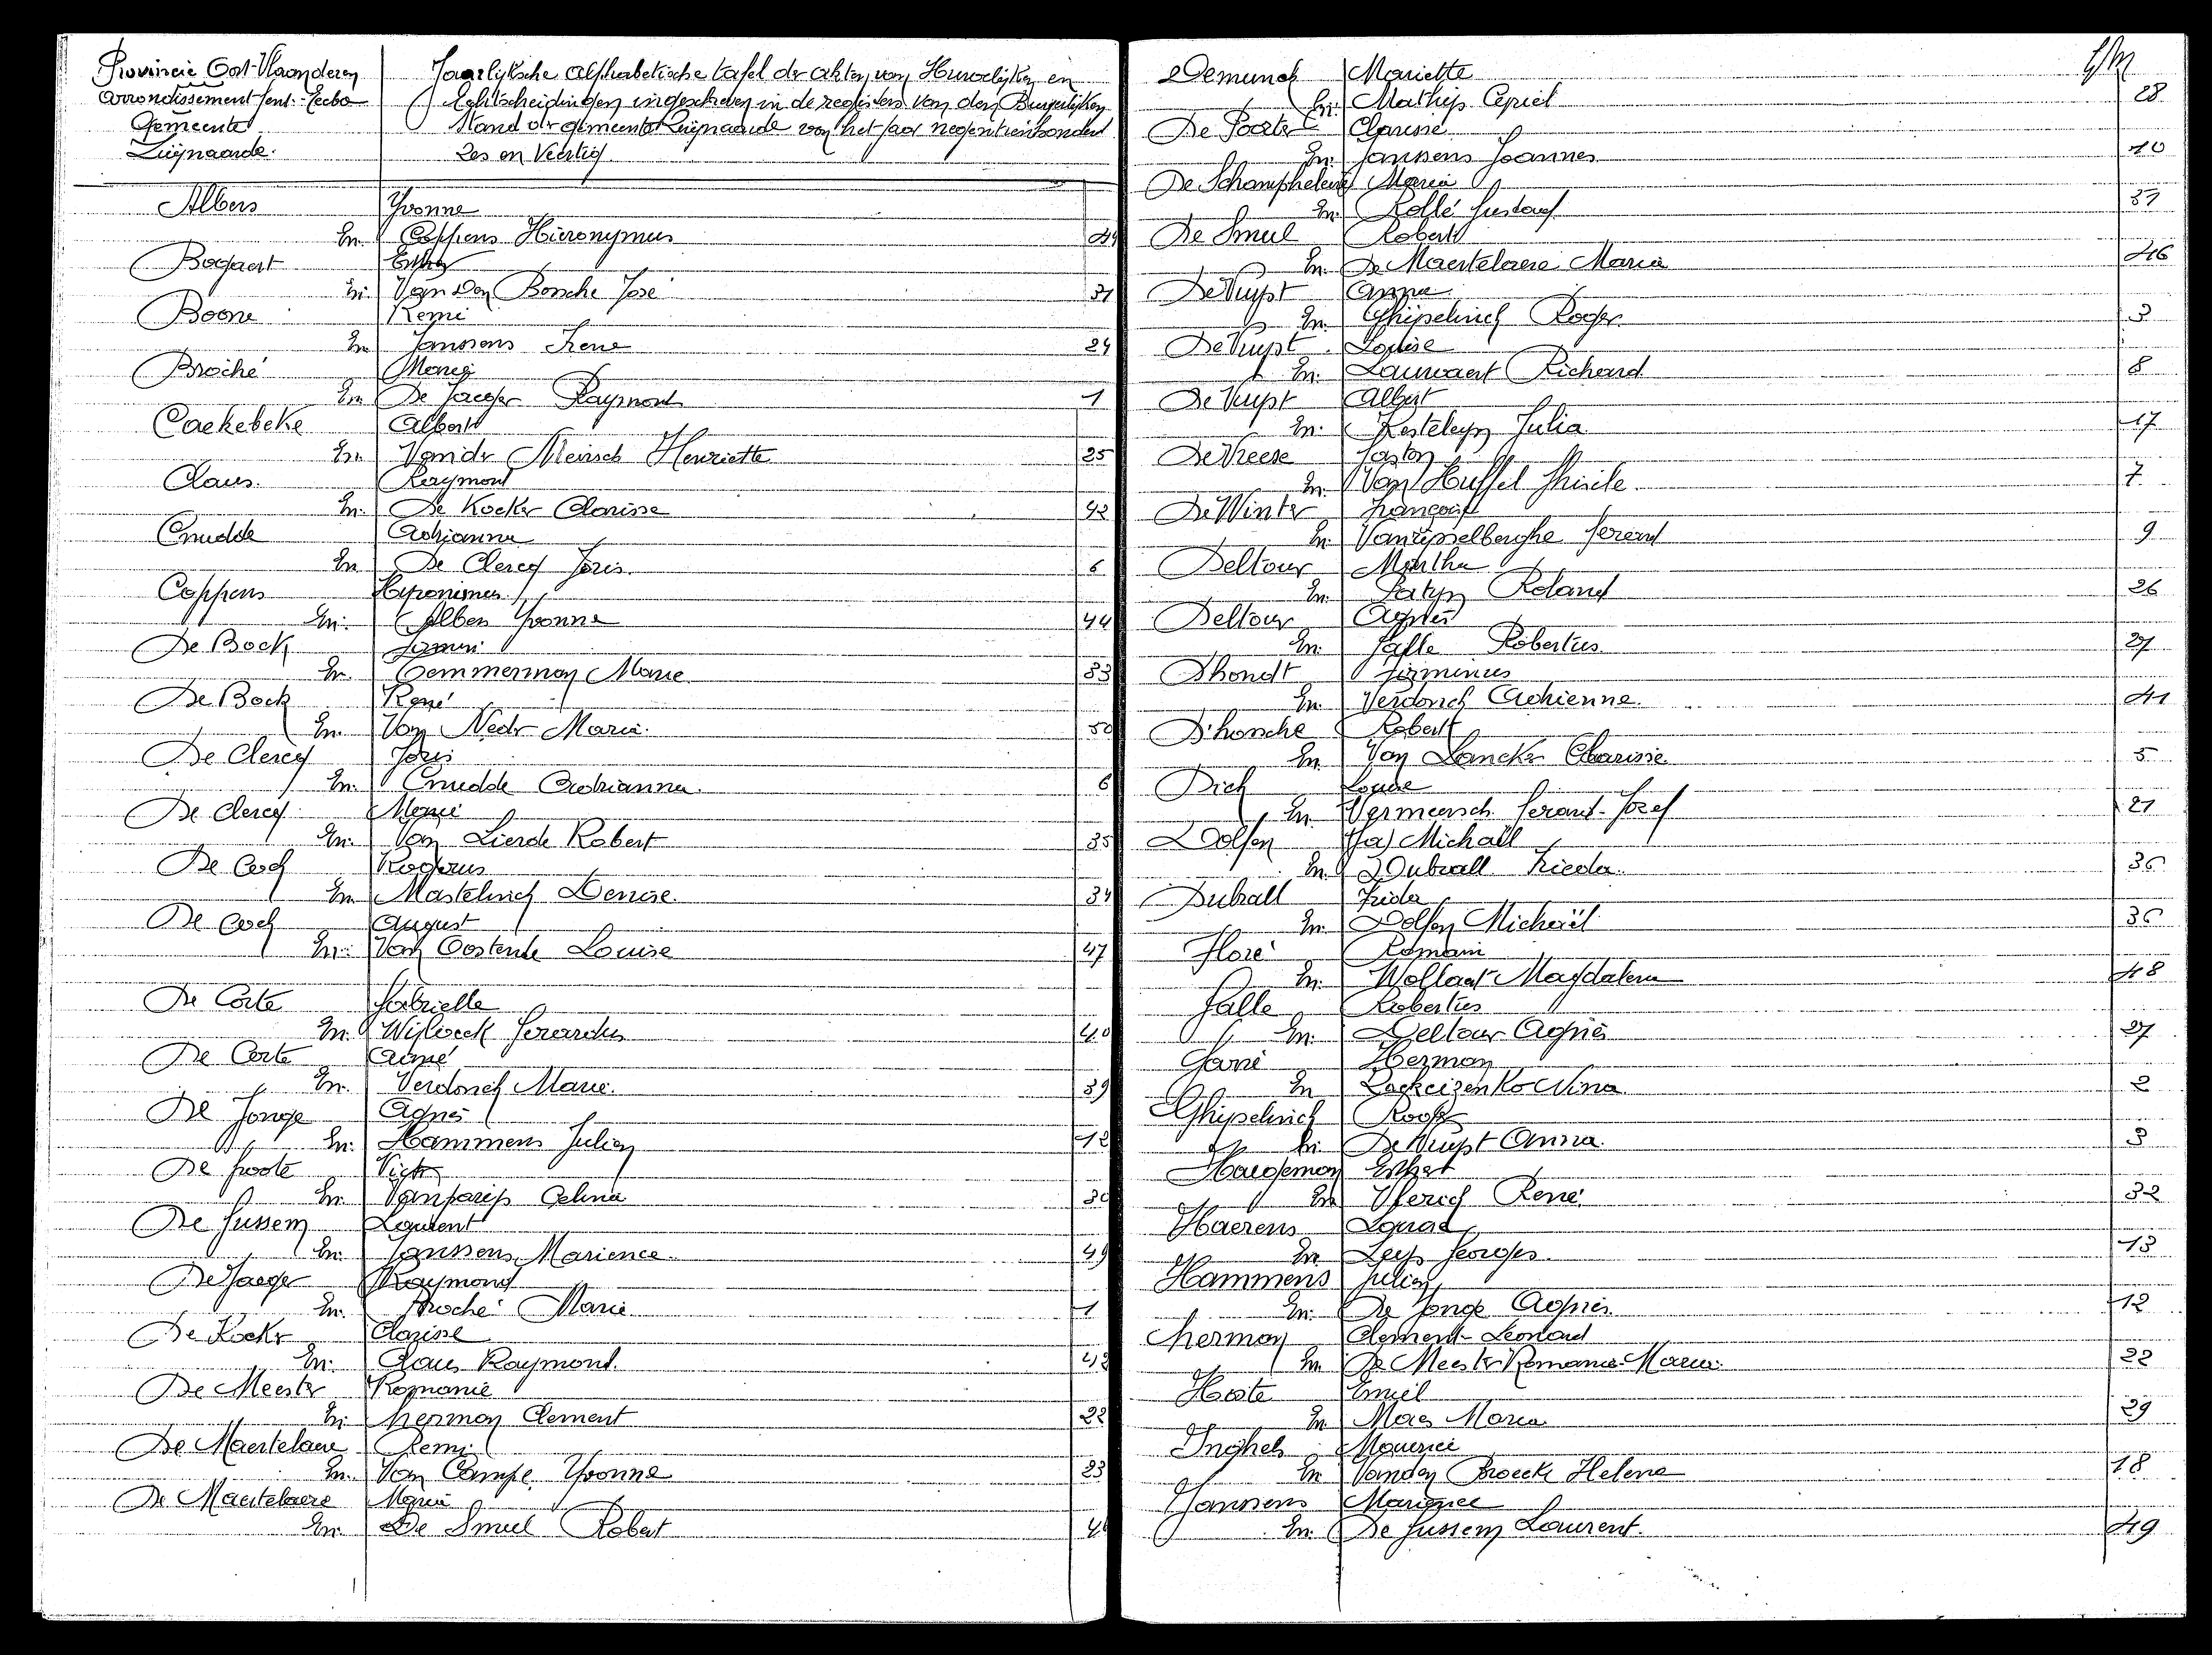 Provincie Oost-Vlaanderen
Arrondissement Gent-Eecloo
Gemeente
Zwijnaarde.
Jaarlijksche alphabetische tafel der akten van Huwelijken en
Echtscheidingen ingeschreven in de registers van den Burgerlijken
Stand der gemeente Zwijnaarde van het jaar negentienhonderd
zes en Veertig
Albers Yvonne
En. Coppens Hieronymus 44
Bogaert Esther
En. Van Den Bossche José 31
Boone Remi
En Janssens Irene 24
Broché Maria
En De Jaeger Raymond 1
Caekebeke Albert
En. Vander Meirsch Henriette 25
Claus. Raymond
En. De Kocker Clarisse 42
Cnudde Adrianna
En De Clercq Joris. 6
Coppens Hyeronimus
En. Albers Yvonne 44
De Bock Firmin
En. Temmerman Marie 33
De Bock René
En. Van Neder Maria. 50
De Clercq Joris
En. Cnudde Adrianna. 6
De Clercq Maria
En. Van Lierde Robert 35
De Cock Rogerus
En Mastelinck Denise. 34
De Cock August
En. Van Oostende Louise 47
De Corte Gabrielle
En. Gerardus 40
De Corte Aimé
En. Verdonck Marie. 39
De Jonge Agnès
En. Hammens Julien 12
De Groote Victor
En. Vanparijs Celina 30
De Gussem Laurent
En. Janssens Marience. 49
De Jaeger Raymond
En. Broché Maria 1
De Kocker Clarisse
En. Claus Raymond. 42
De Meester Romanie
En. Clement 22
De Maertelaere Remi
En. Van Campe Yvonne 23
De Maertelaere Maria
En. De Smul Robert 46
Demunck Mariette
En. Mathijs Cyriel 28
De Poorter Clarisse
En. Janssens Joannes 10
De Schamphelaire Maria
En. Rollé Gustaaf 37
De Smul Robert
En. De Maertelaere Maria 46
De Vuyst Anna
En. Ghyselinck Roger. 3
De Vuyst Louise
En. Lauwaert Richard 8
De Vuyst Albert
En. Kesteleyn Julia 17
De Vreese Gaston
En. Van Huffel 7
De Winter François
En. Vanrysselberghe Gerard 9
Deltour Martha
En. Roland 26
Deltour Agnes
En. Galle Robertus 27
Dhondt Firminus
En. Verdonck Adrienne. 41
D'hossche Robert
En. Van Lancker Clarisse 5
Dick Louise
En. Vermeersch Gerard-Jozef 21
Dolfen (Ja) Michaël
En. Dubrall Frieda. 36
Dubrall Frieda
En. Dolfen Michaël 36
Floré Romain
En. Wollaert Magdalena 48
Galle Robertus
En. Deltour Agnès 27
Garré Herman
En Nina. 2
Ghyselinck Roger
En. De Vuyst Anna. 3
Haegeman Esther
En René. 32
Haerens Louise
En Leys Georges. 13
Hammens Julien
En. De Jonge Agnès. 12
Clement-Leonard
En De Meester Romanie-Maria. 22
Hoste Emiel
En Maes Maria 29
Inghels Maurice
En Vanden Broecke Helena 18
Janssens Marience
En. De Gussem Laurent. 49